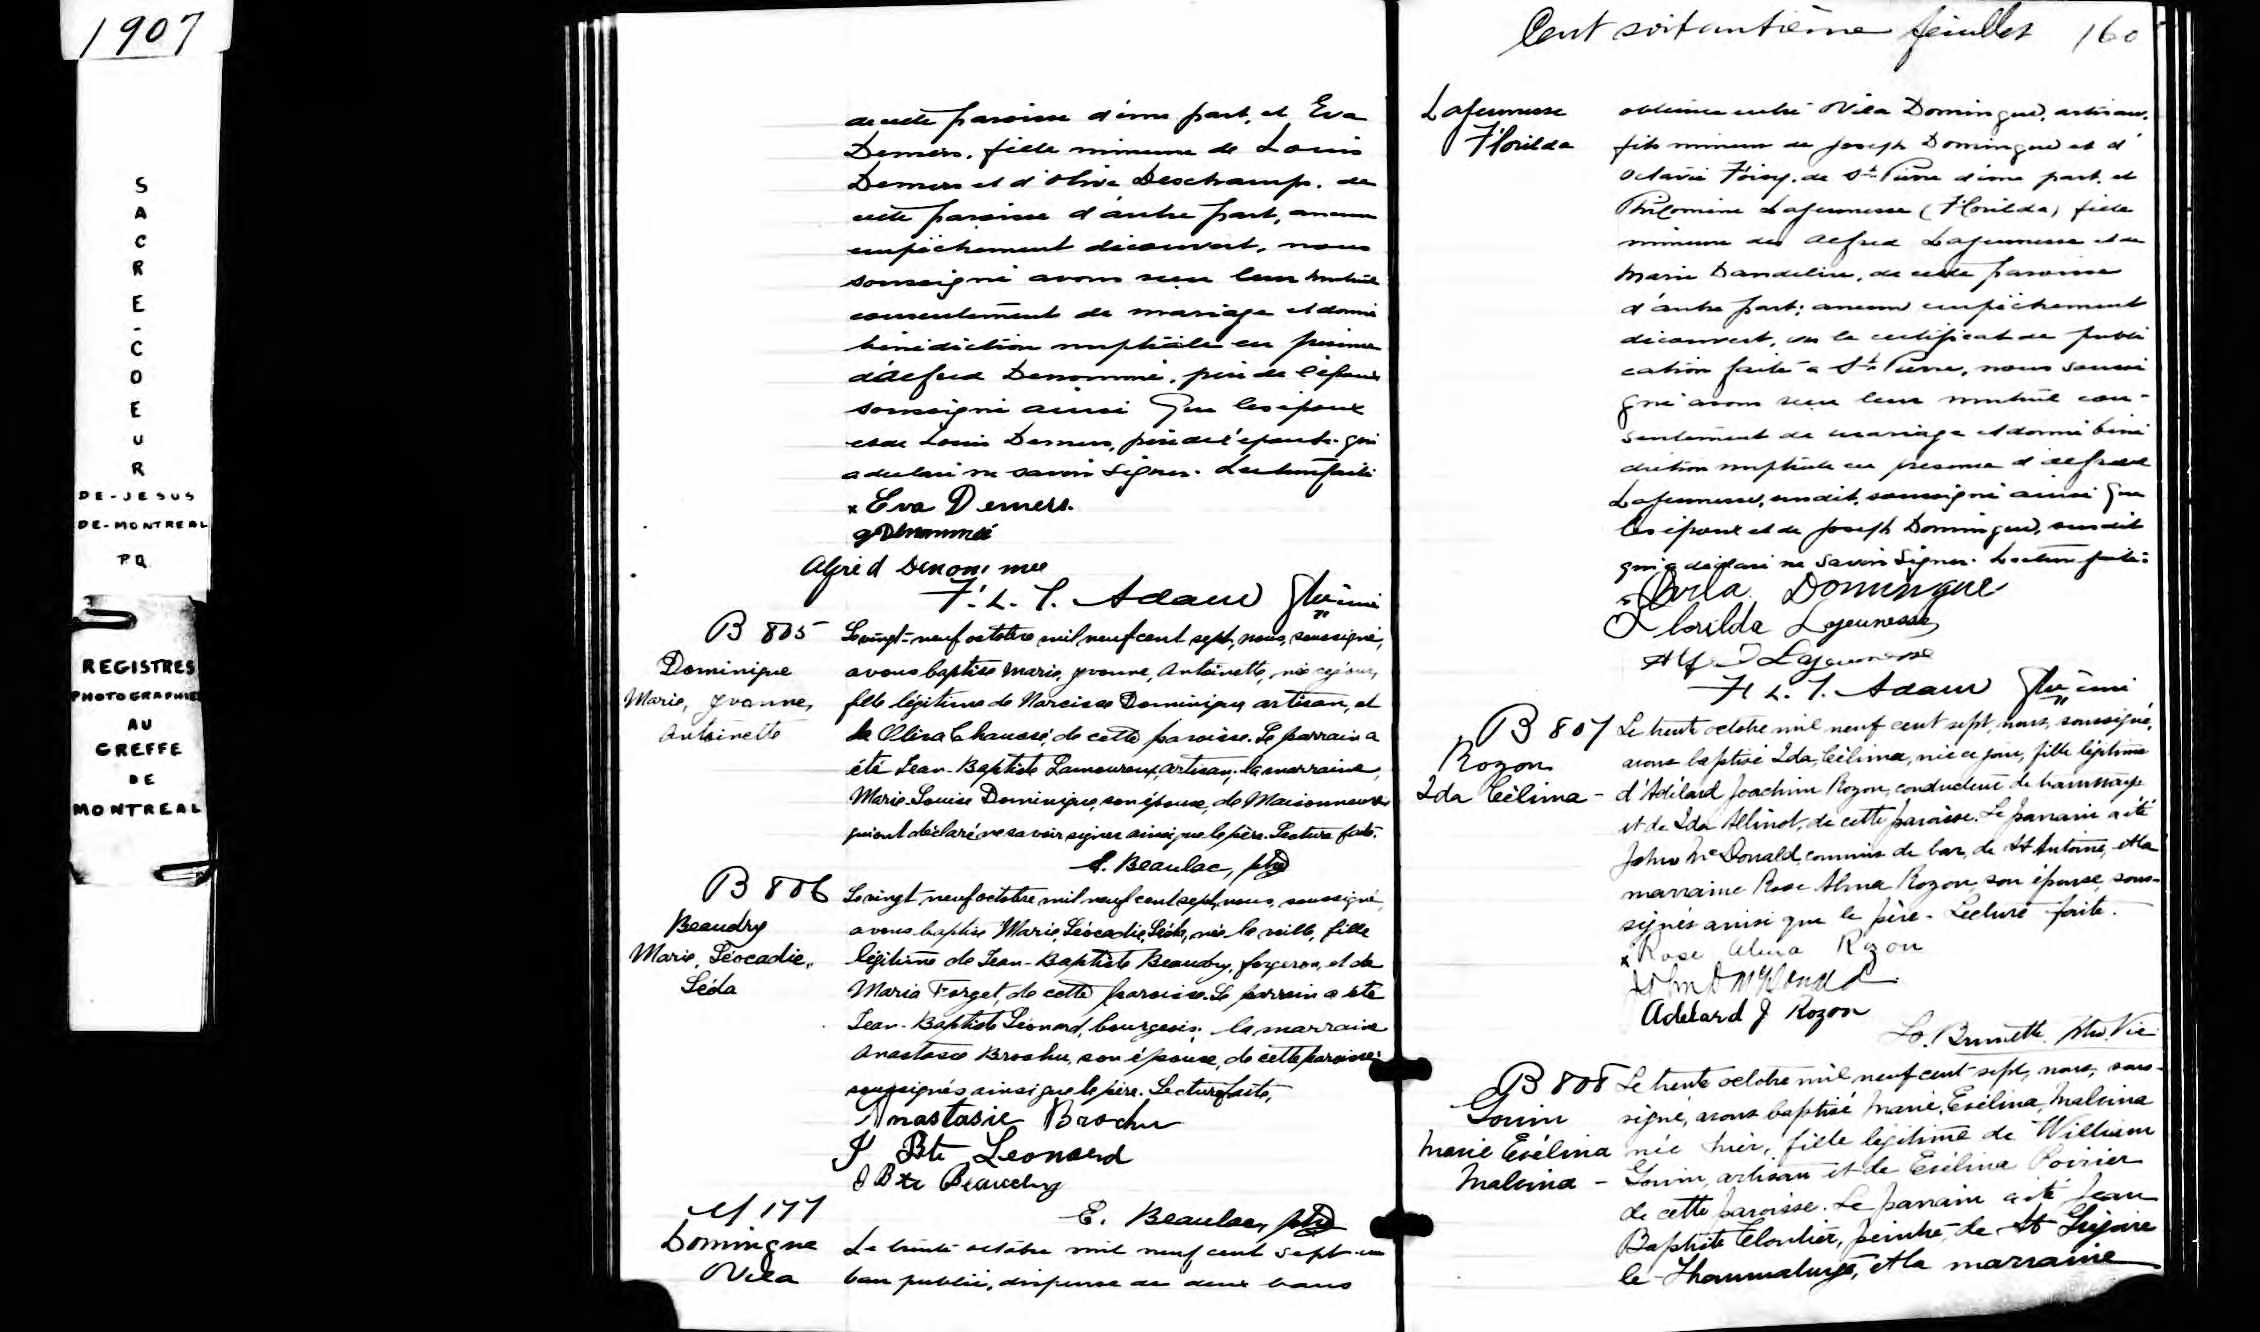 1907
S
A
C
R
E
-
C
O
E
U
R
DE-JESUS
DE-MONTREAL
PQ
REGISTRES
PHOTOGRAPHIES
AU
GREFFE
DE
MONTREAL
de cette paroisse d'une part, et Eva
Demers, fille mineure de Louis
Demers et d'Olive Deschamp, de
cette paroisse d'autre part, aucun
empêchement découvert, nous
soussigné avons reçu leur mutuel
consentement de mariage et donné
bénédiction nuptiale en présence
d'Alfred Denommé, père de l'époux
soussigné ainsi que les époux
et de Louis Demers, père de l'épouse qui
a déclaré ne savoir signer. Lecture faite
x Eva Demers.
Denommée
Alfred Denommee
F. L. T. Adam Ptre curé
B 805
Dominique
Marie, Yvonne,
Antoinette
Le vingt-neuf octobre mil neuf cent sept, nous, soussigné,
avons baptisé Marie, Yvonne, Antoinette, née ce jour,
fille légitime de Narcisse Dominique artisan, et
de Alina Chaussé, de cette paroisse. Le parrain a
été Jean-Baptiste Lamoureux, artisan, la marraine,
Marie-Louise Dominique, son épouse, de Maisonneuve
qui ont déclaré ne savoir signer ainsi que le père. Lecture faite.
E. Beaulac, ptre
B 806
Beaudry
Marie, Léocadie,
Léda
Le vingt-neuf octobre mil neuf cent sept, nous, soussigné,
avons baptisé Marie, Léocadie, Léda, née la veille, fille
légitime de Jean-Baptiste Beaudry, forgeron, et de
Maria Forget, de cette paroisse. Le parrain a été
Jean-Baptiste Léonard, bourgeois, la marraine
Anastasie Brochu, son épouse, de cette paroisse;
soussignés ainsi que le père. Lecture faite,
Anastasie Brochu
J Bte Leonard
J Bte Beaudry
E. Beaulac, ptre
M 177
Domingue
Ovila
Le trente octobre mil neuf cent sept un
ban publié, dispense de deux bans
Cent soixantième feuillet 160
Lajeunesse
Florilda
obtenue entre Ovila Domingue, artisan,
fils mineur de Joseph Domingue et d'
Octavie Foisy, de St Pierre d'une part, et
Philomène Lajeunesse (Florilda) fille
mineure de Alfred Lajeunesse et de
Marie Dandelin, de cette paroisse
d'autre part; aucun empêchement
découvert, vu le certificat de publi
cation faite à St Pierre, nous soussi
gné avons reçu leur mutuel con-
sentement de mariage et donné béné
diction nuptiale en présence d'Alfred
Lajeunesse, susdit, soussigné ainsi que
les époux et de Joseph Domingue, susdit
qui a déclaré ne savoir signer. Lecture faite.
x Ovila Domingue
Florilda Lajeunesse
Alf Lajeunesse
F. L. T. Adam Ptre curé
B 807
Rozon
Ida Célima -
Le trente octobre mil neuf cent sept, nous, soussigné,
avons baptisé Ida, Célima, née ce jour, fille légitime
d'Adélard Joachim Rozon, conducteur de tramways
et de Ida Allinot, de cette paroisse. Le parrain a été
John McDonald, commis de bar, de St Antoine, et la
marraine Rose Alma Rozon, son épouse, sous-
signés ainsi que le père - Lecture faite.
x Rose Alma Rozon
John D McDonald
Adelard J Rozon
Brunette Ptre Vic
B 808
Gouin
Marie Evélina
Malvina -
Le trente octobre mil neuf cent sept, nous, sous-
signé, avons baptisé Marie, Evélina, Malvina
née hier, fille légitime de William
Gouin, artisan et de Evélina Poirier
de cette paroisse. Le parrain a été Jean
Baptiste Cloutier, peintre, de St Grégoire
le Thaumaturge, et la marraine